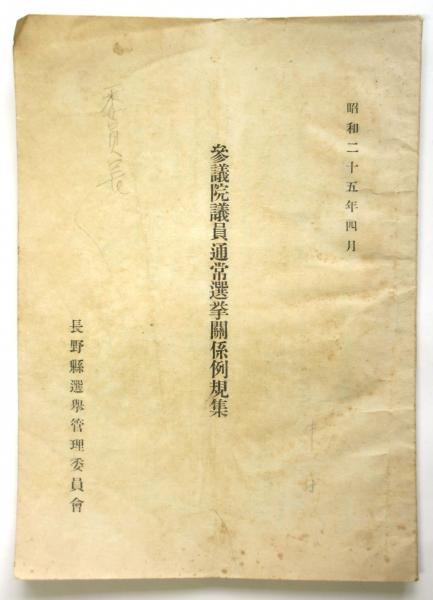 昭和二十五年四月
參議院議員通常選挙關係例規集
長野縣選擧管理委員會
委員長